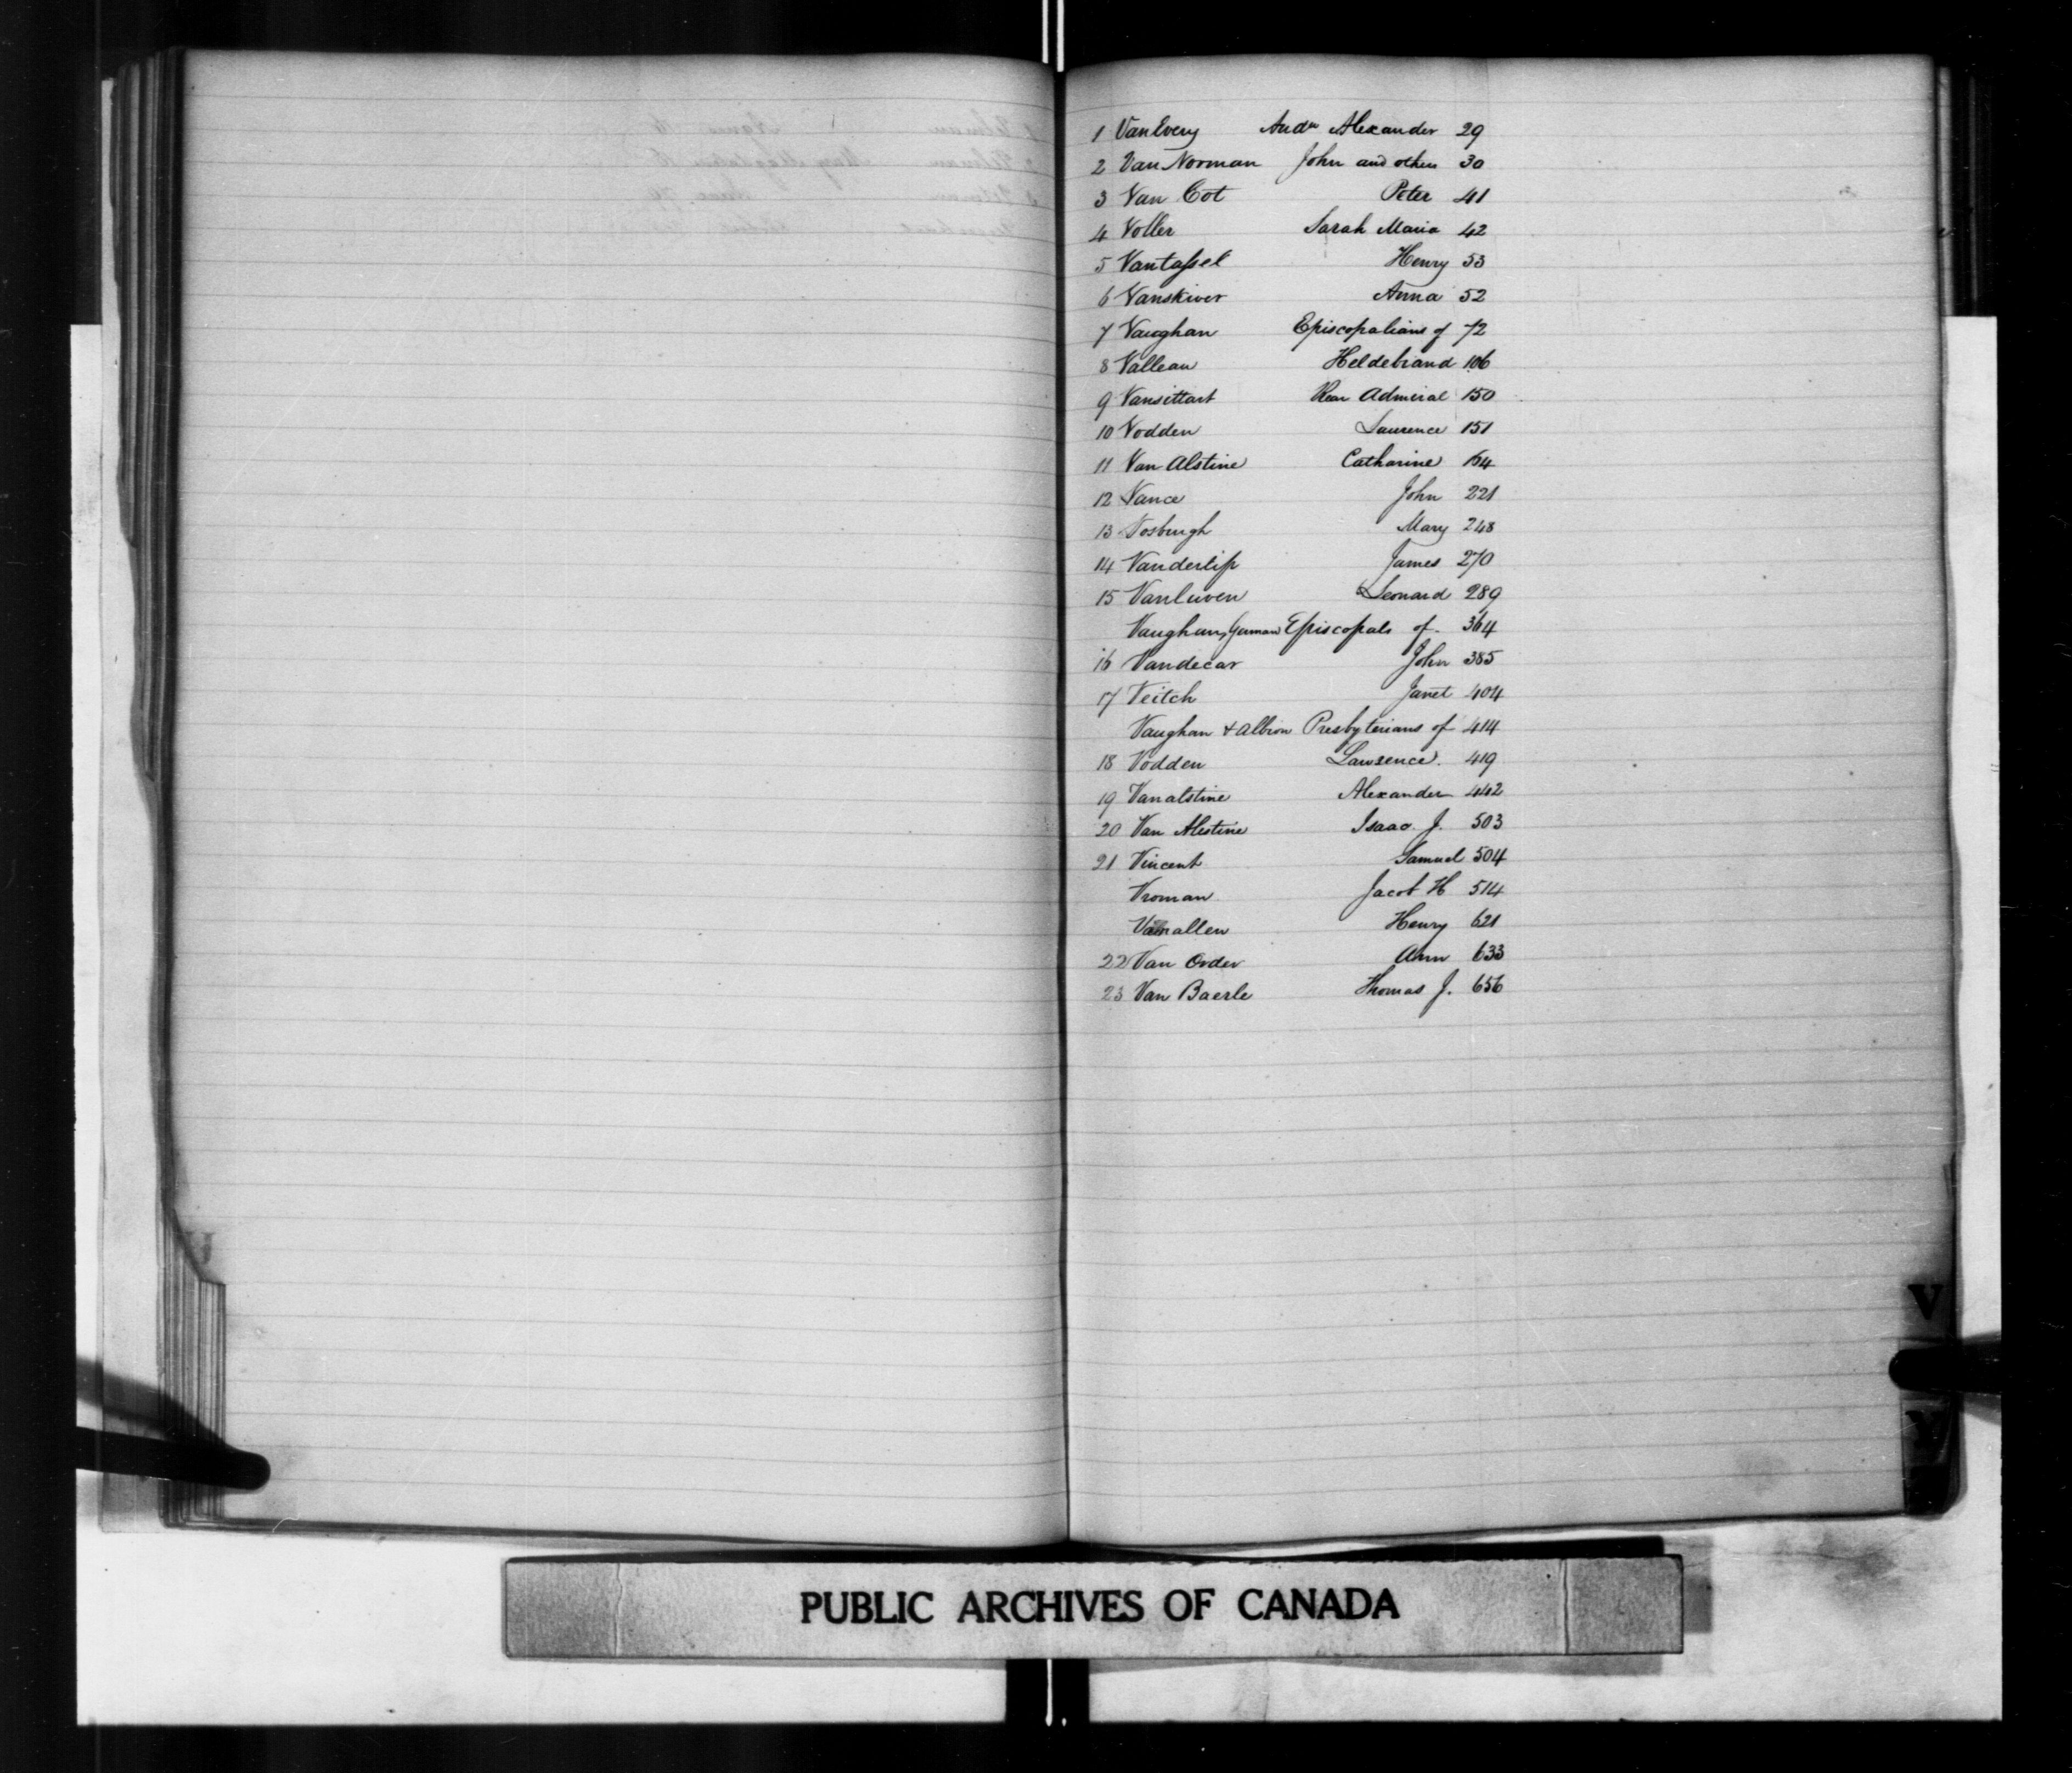 1 VanEvery Andw Alexander 29
2 Van Norman John and others 30
3 Van Cot Peter 41
4 Voller Sarah Maria 42
5 Vantassel Henry 53
6 Vanskiver Anna 52
7 Vaughan Episcopalians of 72
8 Valleau Heldebrand 106
9 Vansittart Rear Admiral 150
10 Vodden Laurence 151
11 Van Alstine Catharine 164
12 Vance John 221
13 Vosburgh Mary 248
14 Vanderlip James 270
15 Vanluven Leonard 289
Vaughan, German Episcopals of. 364
16 Vandecar John 385
17 Veitch Janet 404
Vaughan & Albion Presbyterians of 414
18 Vodden Lawrence. 419
19 Vanalstine Alexander 442
20 Van Alestine Isaac. J. 503
21 Vincent Samuel 504
Vroman Jacob H 514
Vanallen Henry 621
22 Van Order Ann 633
23 Van Baerle Thomas J. 656
V
Y
PUBLIC ARCHIVES OF CANADA